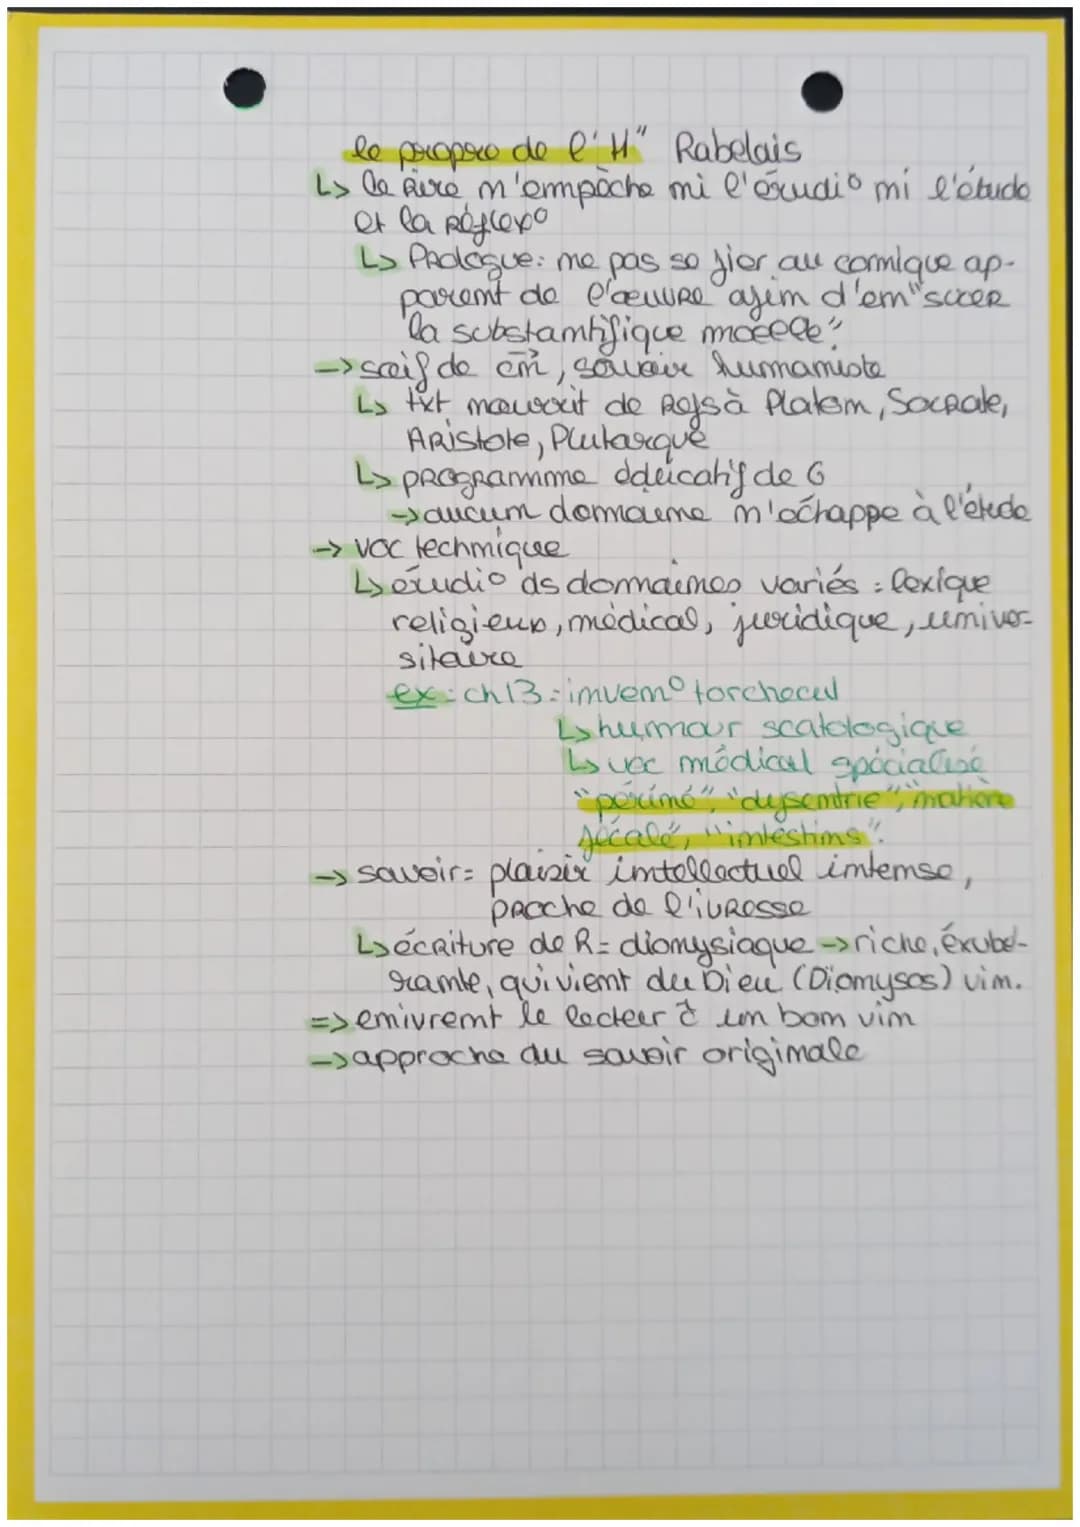 le propre de l'H" Rabelais
↳ le Rire n'empêche ni l'érudi° ni l'étude
et la Réflex°
↳ Prologue: ne pas se fier au comique ap-
parent de l'œuvre afin d'en "sucer
la substantifique moelle".
→ soif de cñ, savoir humaniste
↳ txt nourrit de Refs à Platon, Socrate,
Aristote, Plutarque
↳ programme éducatif de G
→ aucun domaine n'échappe à l'étude
→ voc technique
↳ érudi° ds domaines variés : lexique
religieux, médical, juridique, univer-
sitaire
ex : ch 13 : inven° torchecul
↳ humour scatologique
↳ voc médical spécialisé
"périné", "dysentrie", "matière
fécale", "intestins".
→ savoir = plaisir intellectuel intense,
proche de l'ivresse
↳ écriture de R = dionysiaque → riche, éxubé-
rante, qui vient du Dieu (Dionysos) vin.
=> enivrent le lecteur c̄ un bon vin
→ approche du savoir originale